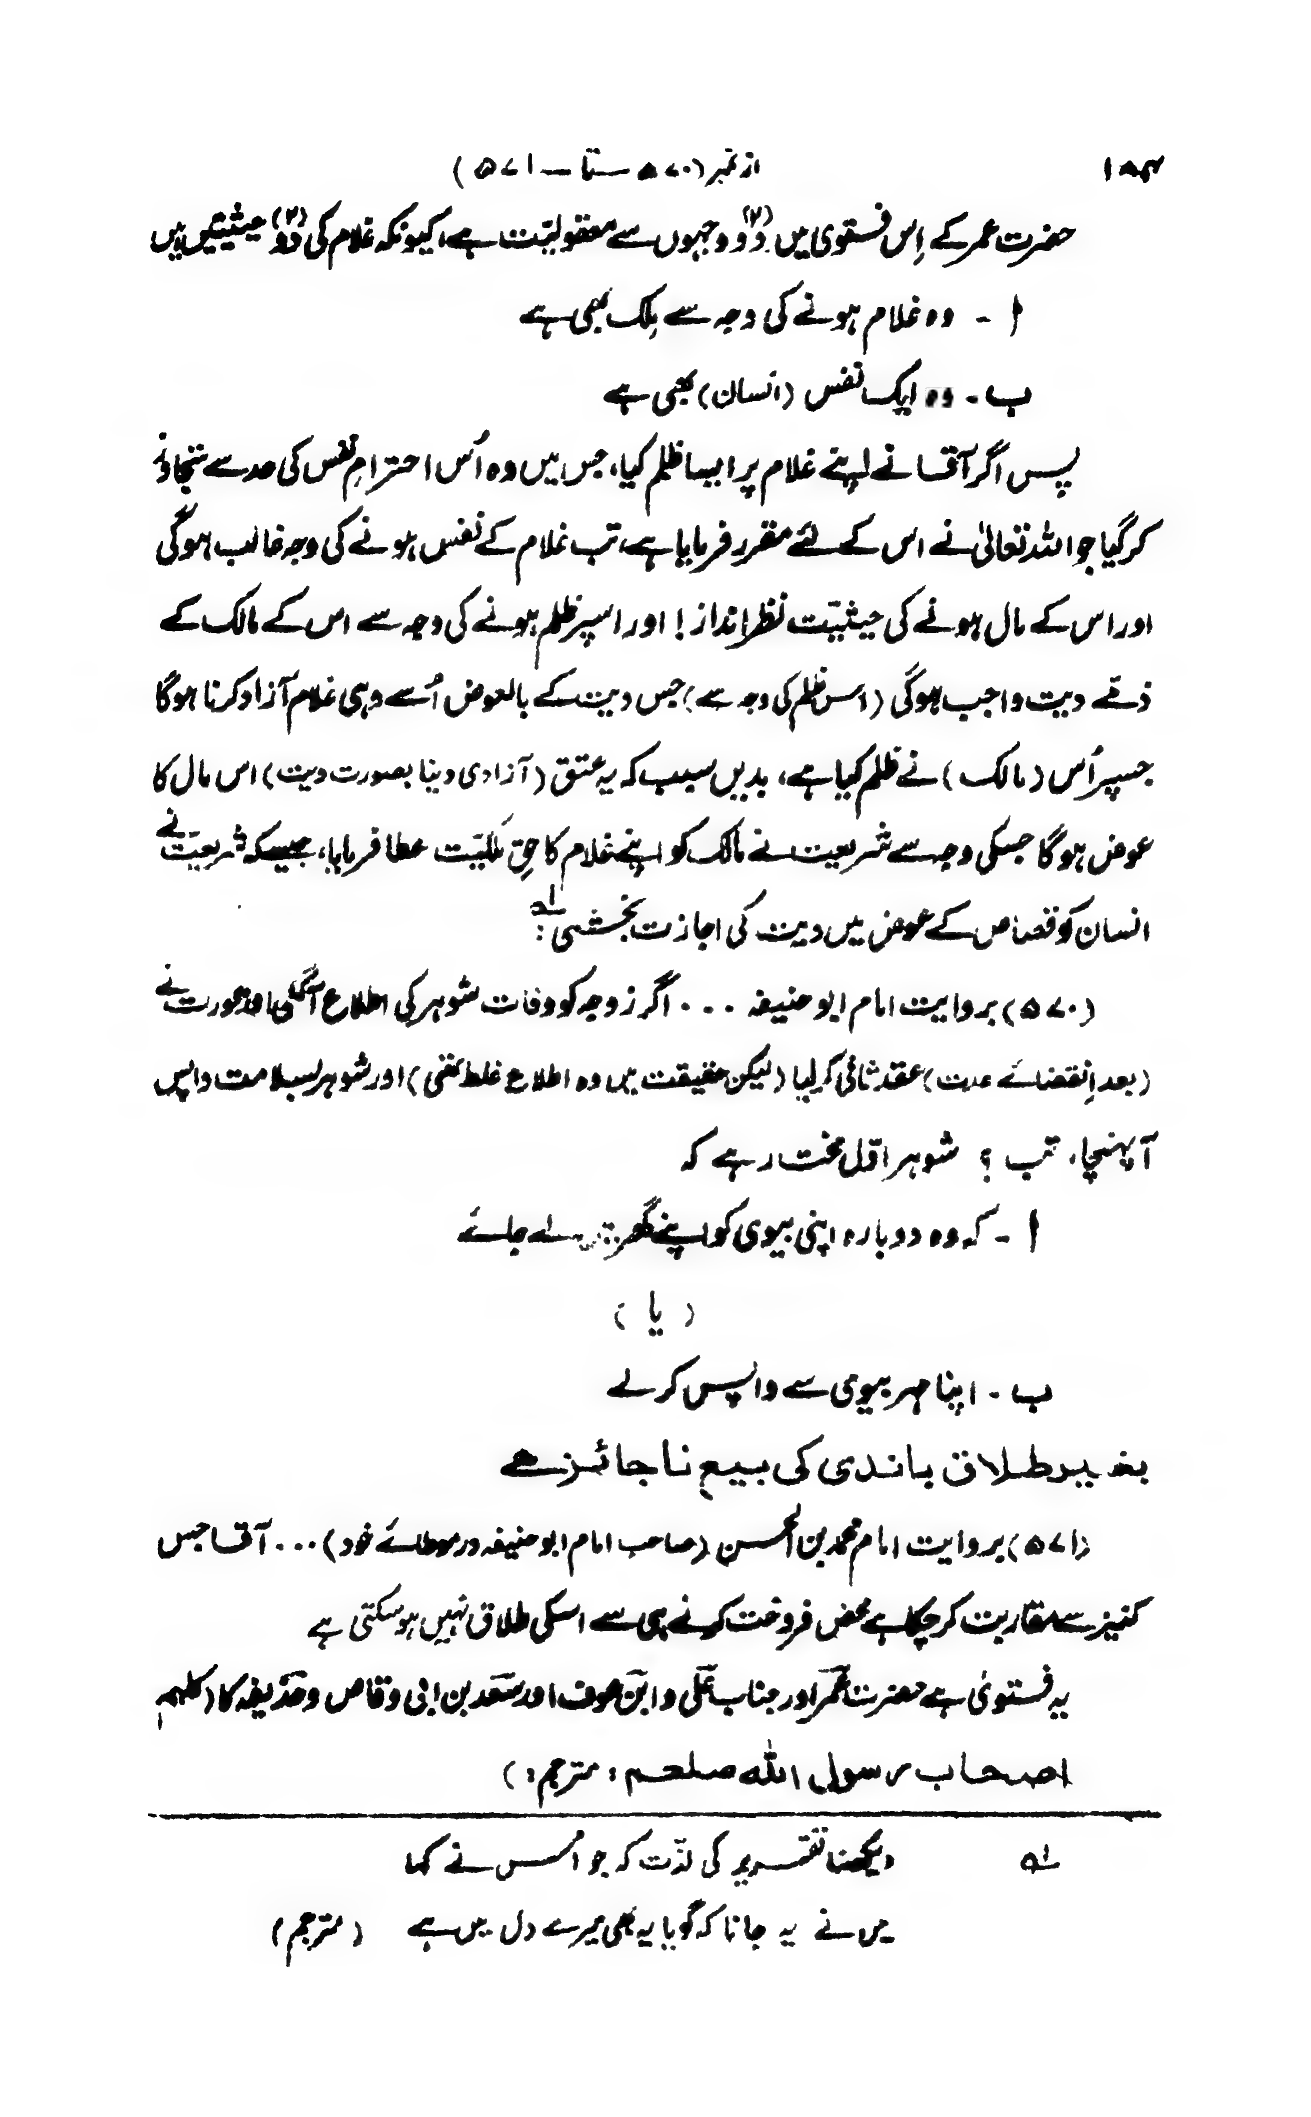 ۱۵۴ از نمبر (۵۷۰ ـ تا ـ ۵۷۱)
حضرت عمر کے اِس فتویٰ میں دو(۲) وجہوں سے معقولیّت ہے، کیونکہ غلام کی دو(۲) حیثیتیں ہیں
ا - وہ غلام ہونے کی وجہ سے مِلک بھی ہے
ب - وہ ایک نفس (انسان) بھی ہے
پس اگر آقا نے اپنے غلام پر ایسا ظلم کیا، جس میں وہ اُس احترامِ نفس کی حد سے تجاوز
کر گیا جو اللہ تعالیٰ نے اس کے لئے مقرر فرمایا ہے، تب غلام کے نفس ہونے کی وجہ غالب ہوگی
اور اس کے مال ہونے کی حیثیّت نظر انداز! اور اسپر ظلم ہونے کی وجہ سے اس کے مالک کے
ذمّے دیت واجب ہوگی (اس ظلم کی وجہ سے) جس دیت کے بالعوض اُسے وہی غلام آزاد کرنا ہوگا
جسپر اُس (مالک) نے ظلم کیا ہے، بدیں سبب کہ یہ عتق (آزادی دینا بصورت دیت) اس مال کا
عوض ہوگا جسکی وجہ سے شریعت نے مالک کو اپنے غلام کا حقِ مَلکیّت عطا فرمایا، جیسے کہ شریعت نے
انسان کو قصاص کے عوض میں دیت کی اجازت بخشی ؎۱ :
(۵۷۰) بروایت امام ابو حنیفہ ... اگر زوجہ کو وفات شوہر کی اطلاع آگئی اور عورت نے
(بعد اِنقضائے عدت) عقد ثانی کر لیا (لیکن حقیقت میں وہ اطلاع غلط تھی) اور شوہر بسلامت واپس
آپہنچا، تب ؟ شوہر اوّل مختار ہے کہ
ا - کہ وہ دوبارہ اپنی بیوی کو اپنے گھر میں لے جائے
(یا)
ب - اپنا مہر بیوی سے واپس کر لے
بغیر طلاق باندی کی بیع نا جائز ہے
(۵۷۱) بروایت امام محمد بن الحسن (صاحب امام ابو حنیفہ در موطائے خود) ... آقا جس
کنیز سے مقاربت کر چکا ہے محض فروخت کرنے ہی سے اسکی طلاق نہیں ہوسکتی ہے
یہ فتویٰ ہے حضرت عمر اور جناب علی و ابن عوف اور سعد بن ابی وقاص و حذیفہ کا (کلہم
اصحاب رسول اللہ صلعم: مترجم:)
؎۱ دیکھنا تقریر کی لذّت کہ جو اُس نے کہا
میں نے یہ جانا کہ گویا یہ بھی میرے دل میں ہے (مترجم)